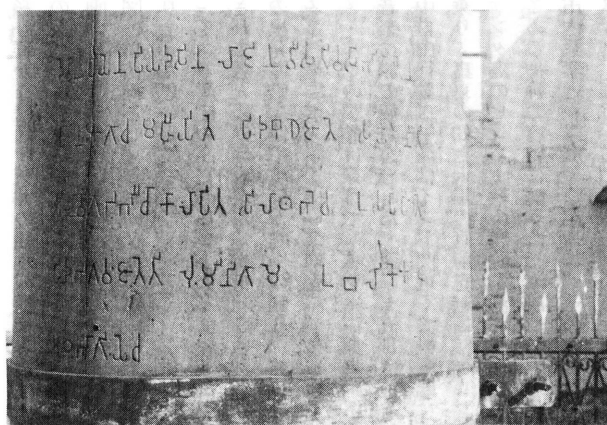 𑀤𑁂𑀯𑀸𑀦𑀧𑀺𑀬𑁂𑀦 𑀧𑀺𑀬𑀤𑀲𑀺𑀦 𑀮𑀸𑀚𑀺𑀦 𑀯𑀻𑀲𑀢𑀺𑀯𑀲𑀸𑀪𑀺𑀲𑀺𑀢𑁂𑀦
𑀅𑀢𑀦 𑀆𑀕𑀸𑀘 𑀫𑀳𑀻𑀬𑀺𑀢𑁂 𑀳𑀺𑀤 𑀩𑀼𑀥𑁂 𑀚𑀸𑀢𑁂 𑀲𑀓𑁆𑀬𑀫𑀼𑀦𑀻 𑀢𑀺
𑀲𑀺𑀮𑀸 𑀯𑀺𑀕𑀥𑀪𑀻 𑀘𑀸 𑀓𑀸𑀮𑀸𑀧𑀺𑀢 𑀲𑀺𑀮𑀸𑀣𑀪𑁂 𑀘 𑀉𑀲𑀧𑀸𑀧𑀺𑀢𑁂
𑀳𑀺𑀤 𑀪𑀕𑀯𑀁 𑀚𑀸𑀢𑁂 𑀢𑀺 𑀮𑀼𑀁𑀫𑀺𑀦𑀺 𑀕𑀸𑀫𑁂 𑀉𑀩𑀮𑀺𑀓𑁂 𑀓𑀝𑁂
𑀅𑀞𑀪𑀸𑀕𑀺𑀬𑁂 𑀘